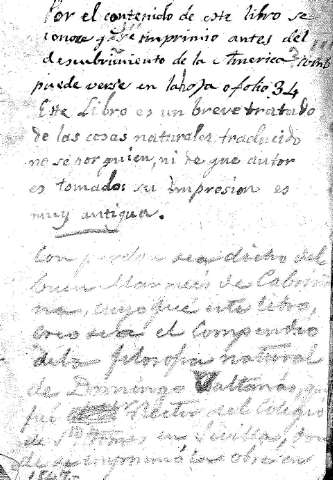 Por el contenido de este libro se
conoce que se imprimio antes del
descubrimiento de la America como
puede verse en la hoja o folio 34
Este Libro es un breve tratado
de las cosas naturales, traducido
no sé por quien, ni de que autor
es tomado: su impresion es
muy antigua.
Con perdon sea dicho del
buen Marqués de
creo sea el Compendio
de la filosofia natural
de Domingo Valtanás, que
fué Rector del Colegio
de Sto Tomas en Sevilla, don
de se imprimió la obra en